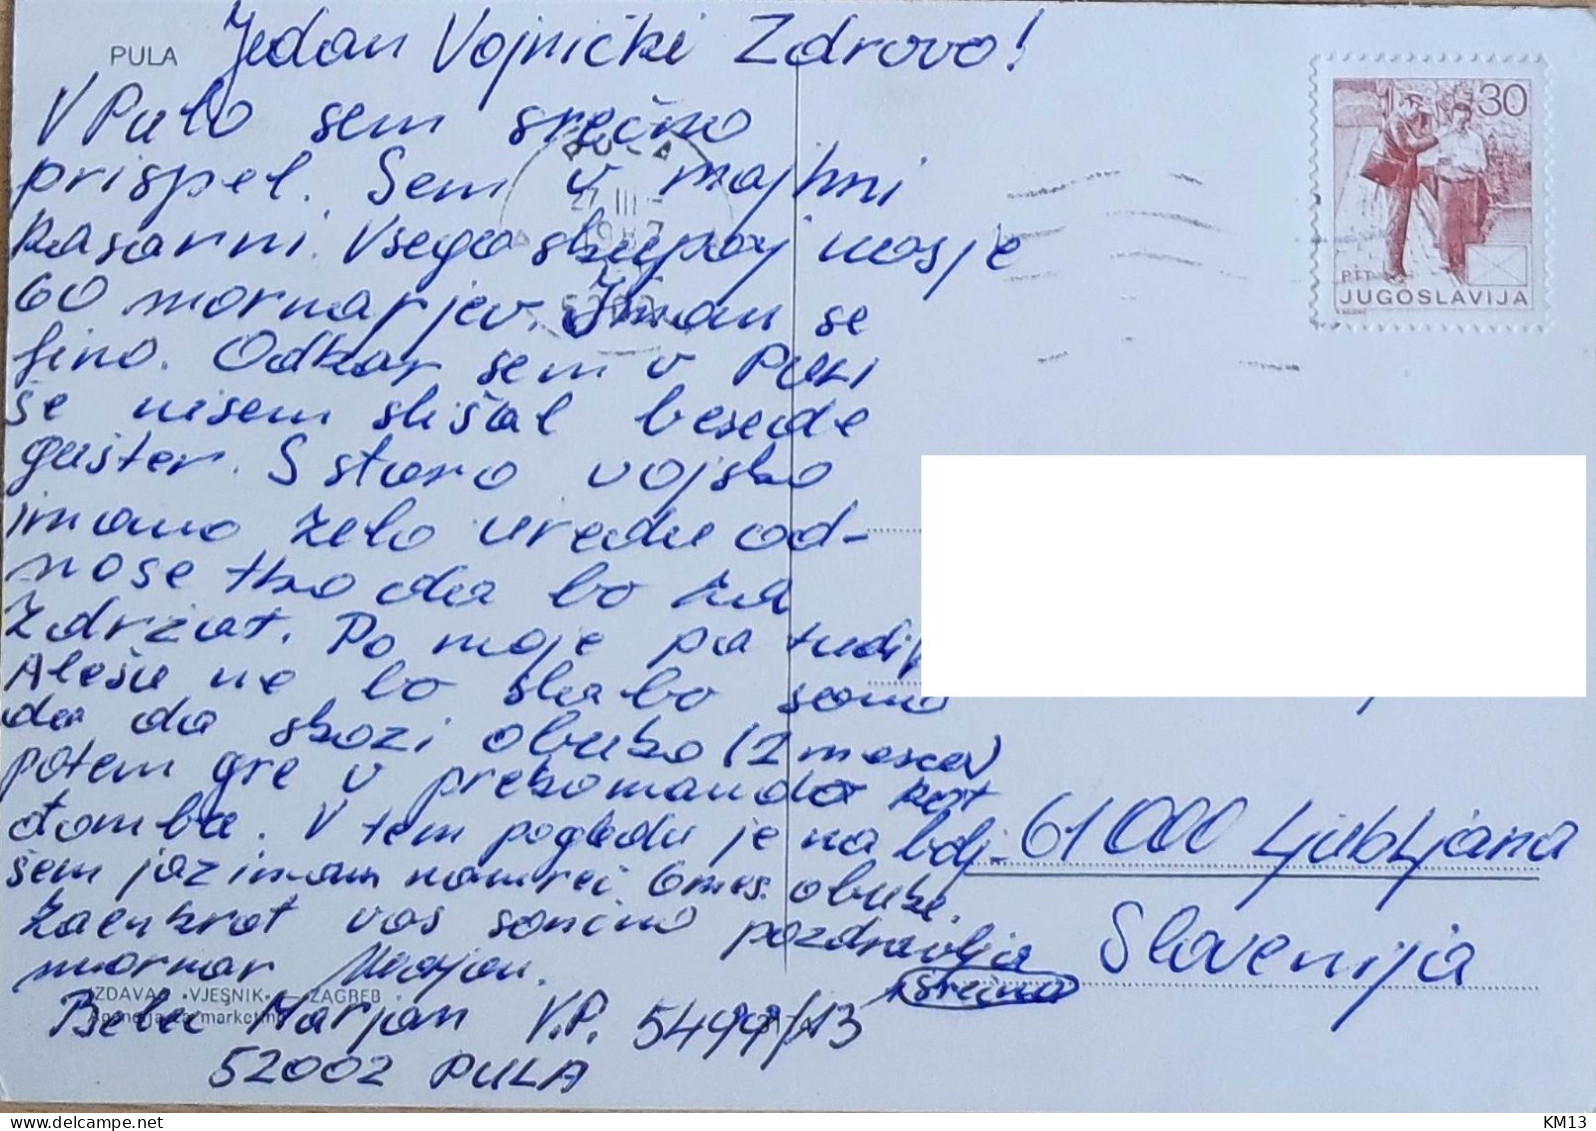 PULA
Jedan Vojnički Zdravo!
V Pulo sem srečno
prispel. Sem v majhni
kasarni. Vsega skupaj nas je
60 mornarjev. Imam se
fino. Odkar sem v Puli
še nisem slišal besede
gušter. S staro vojsko
imamo zelo v redu od-
nose tko da bo za
zdržat. Po moje pa tudi
Alešu ne bo slabo samo
da da skozi obuko (2 mesca)
potem gre v prekomando kot
džomba. V tem pogledu je na bolj-
šem jaz imam namreč 6 mes. obuke.
Zaenkrat vas sončno pozdravlja
mornar Marjan.
srečno
Marjan V.P. 5499/13
52002 PULA
IZDAVAČ «VJESNIK» – ZAGREB
Agencija za marketing
PULA
27 III
1987
30
PTT
JUGOSLAVIJA
61000 Ljubljana
Slovenija
KM13